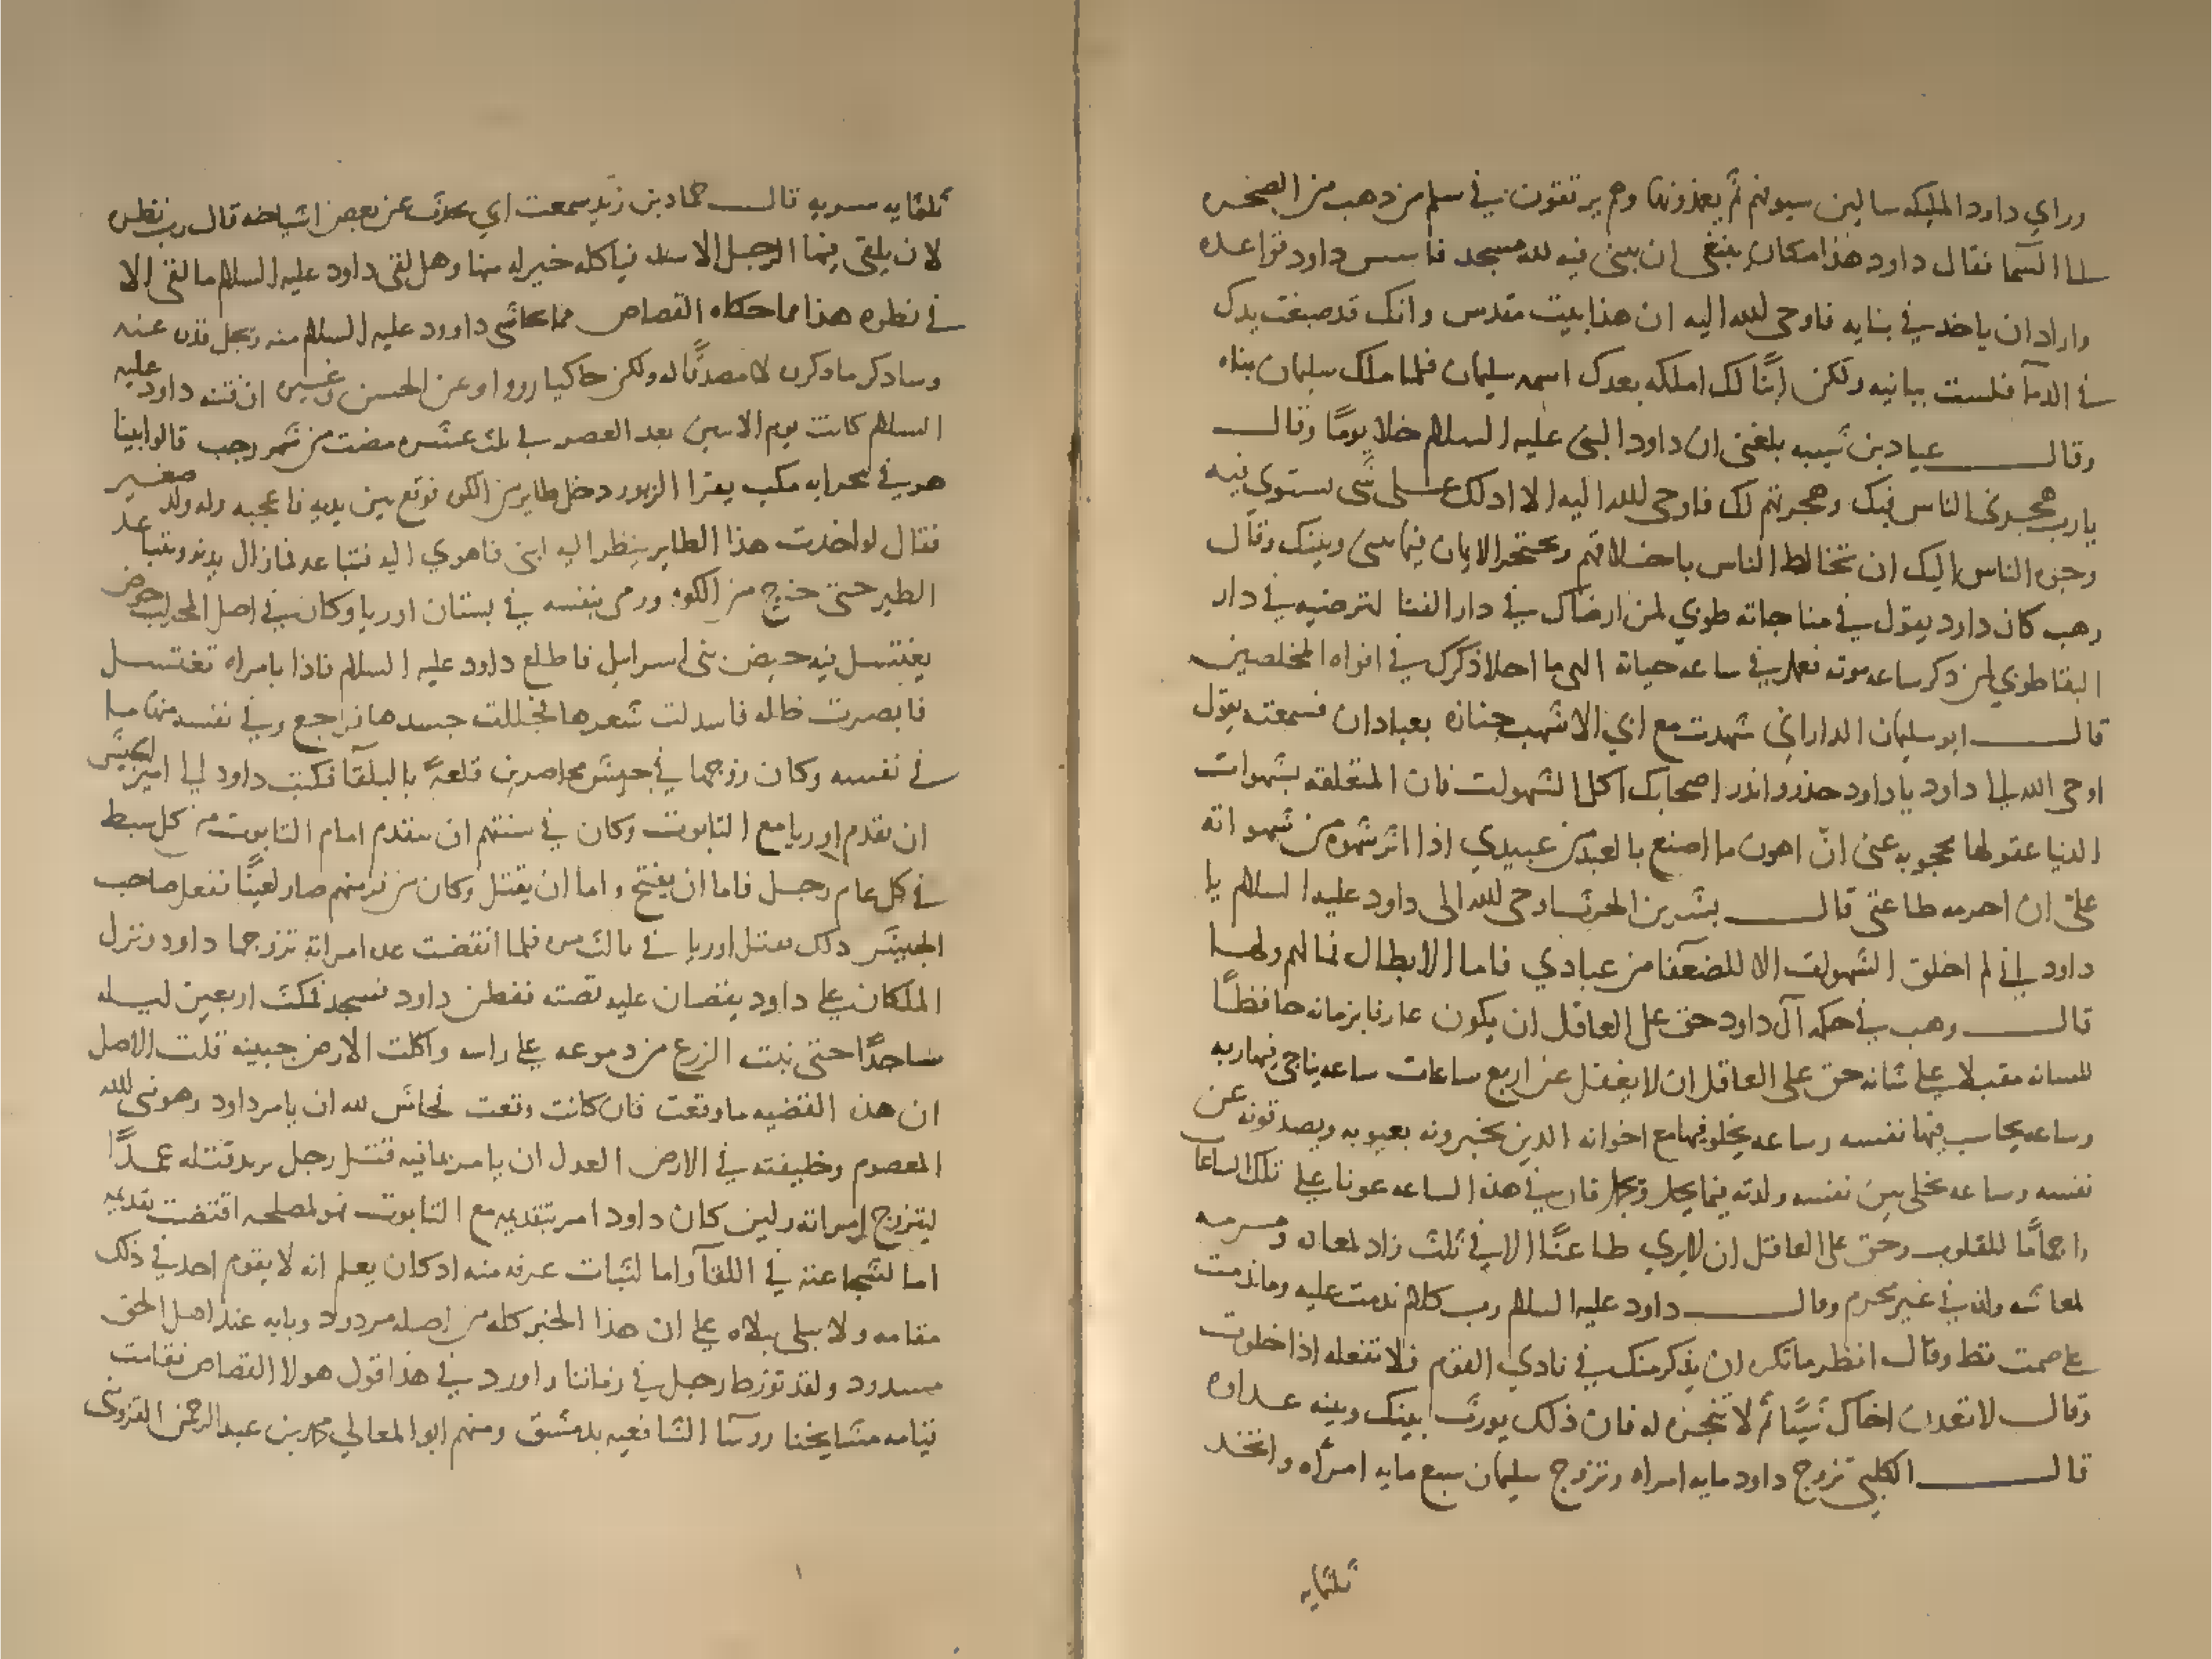 وراي داود المليكه سالين سيوفهم ثم يغمدونها وهم يرتقون في سلم من ذهب من الصخره
الى السما فقال داود هذا مكان ينبغي ان يبنى فيه لله مسجد فاسس داود قواعده
واراد ان ياخذ في بنايه فاوحى الله اليه ان هذا بيت مقدس وانك قد صبغت يدك
في الدمآ فلست ببانيه ولكن ابنًا لك املكه بعدك اسمه سليمان فلما ملك سليمان بناه
وقال عباد بن شيبه بلغني ان داود النبي عليه السلام خلا يومًا وقال
يا رب هجرني الناس فيك وهجرتهم لك فاوحى الله اليه الا ادلك على شي تستوي فيه
وجوه الناس اليك ان تخالط الناس باخلاقهم وتحتجر الايمان فيما بيني وبينك وقال
وهب كان داود يقول في مناجاته طوبي لمن ارضاك في دار الفنا لترضيه في دار
البقا طوبي لمن ذكر ساعه موته فعمل في ساعه حياته الهي ما احلا ذكرك في افواه المخلصين
قال ابو سليمان الداراني شهدت مع ابي الاشهب جنازه بعبادان فسمعته يقول
اوحى الله الى داود يا داود حذر وانذر اصحابك اكل الشهوات فان المتعلقه بشهوات
الدنيا عقولها محجوبه عني انّ اهون ما اصنع بالعبد من عبيدي اذا اثر شهوه من شهواته
علىّ ان احرمه طاعتي قال بشر بن الحرث اوحى الله الى داود عليه السلام يا
داود اني لم اخلق الشهوات الا للضعفا من عبادي فاما الابطال فما لهم ولها
قال وهب في حكمه آل داود حق على العاقل ان يكون عارفا بزمانه حافظًا
للسانه مقبلا على شانه حق على العاقل ان لا يغفل عن اربع ساعات ساعه يناجي فيها ربه
وساعه يحاسب فيها نفسه وساعه يخلو فيها مع اخوانه الذين يخبرونه بعيوبه ويصدقونه عن
نفسه وساعه يخلي بين نفسه ولذته فيما يحل ويجمل فان في هذه الساعه عونا على تلك الساعات
واجمامًا للقلوب وحق على العاقل ان لا يري ظاعنًا الا في ثلث زاد لمعاده ومرمه
لمعاشه ولذه في غير محرم وقال داود عليه السلام رب كلام ندمت عليه وما ندمت
على صمت قط وقال انظر ما تكره ان يذكر منك في نادي القوم فلا تفعله اذا خلوت
وقال لا تعدن اخاك شيًا ثم لا تنجزه له فان ذلك يورث بينك وبينه عداوه
قال الكلبي تزوج داود مايه امراه وتزوج سليمان سبع مايه امرأه واتخذ
ثلثمايه
ثلثمايه سريه قال حماد بن زيد سمعت ابي يحدث عن بعض اشياخه قال رب نظره
لان يلقى فيها الرجل الاسد فياكله خير له منها وهل لقي داود عليه السلام ما لقي الا
في نظره هذا مما حكاه القصاص مما يحاشى داوود عليه السلام منه ويجل قدره عنه
وساذكر ما ذكروه لا مصدقًا له ولكن حاكيا رووا عن الحسن وغيره ان فتنه داود عليه
السلام كانت يوم الاثنين بعد العصر في ثلث عشره مضت من شهر رجب قالوا بينا
هو في محرابه مكب يقرا الزبور دخل طاير من الكوه فوقع بين يديه فاعجبه وله ولد صغير
فقال لو اخذت هذا الطاير ينظر اليه ابني فاهوي اليه فتباعد فما زال يدنو ويتباعد
الطير حتى خرج من الكوه ورمى بنفسه في بستان اوريا وكان في اصل المحراب حوض
يغتسل فيه حيض بني اسرايل فاطلع داود عليه السلام فاذا بامراه تغتسل
فابصرت ظله فاسدلت شعرها فجللت جسدها فراجع وفي نفسه منها ما
في نفسه وكان زوجها في جيش محاصرين قلعهً بالبلقآ فكتب داود الى امير الجيش
ان يقدم اوريا مع التابوت وكان في سنتهم ان يتقدم امام التابوت من كل سبط
في كل عام رجل فاما ان يفتح واما ان يقتل وكان من فر منهم صار لعينًا ففعل صاحب
الجيش ذلك فقتل اوريا في ثالث مره فلما انقضت عده امراته تزوجها داود ونزل
الملكان على داود يقصان عليه قصته ففطن داود فسجد فمكث اربعين ليله
ساجدًا حتى نبت الزرع من دموعه على راسه واكلت الارض جبينه قلت الاصل
ان هذه القضيه ما وقعت فان كانت وقعت فحاش لله ان يامر داود وهو نبي الله
المعصوم وخليفته في الارض العدل ان يامر بما فيه قتل رجل يريد قتله عمدًا
ليتزوج امراته ولين كان داود امر بتقديمه مع التابوت فهو لمصلحه اقتضت تقديمه
اما لشجاعته في اللقآ واما لثبات عرفه منه اذ كان يعلم انه لا يقوم احد في ذلك
مقامه ولا يبلي بلاه على ان هذا الخبر كله من اصله مردود وبابه عند اهل الحق
مسدود ولقد تورط رجل في زماننا واورد في هذا قول هولا القصاص فقامت
قيامه مشايخنا روسآ الشافعيه بدمشق ومنهم ابو المعالي محمد بن عبد الرحمن القزويني